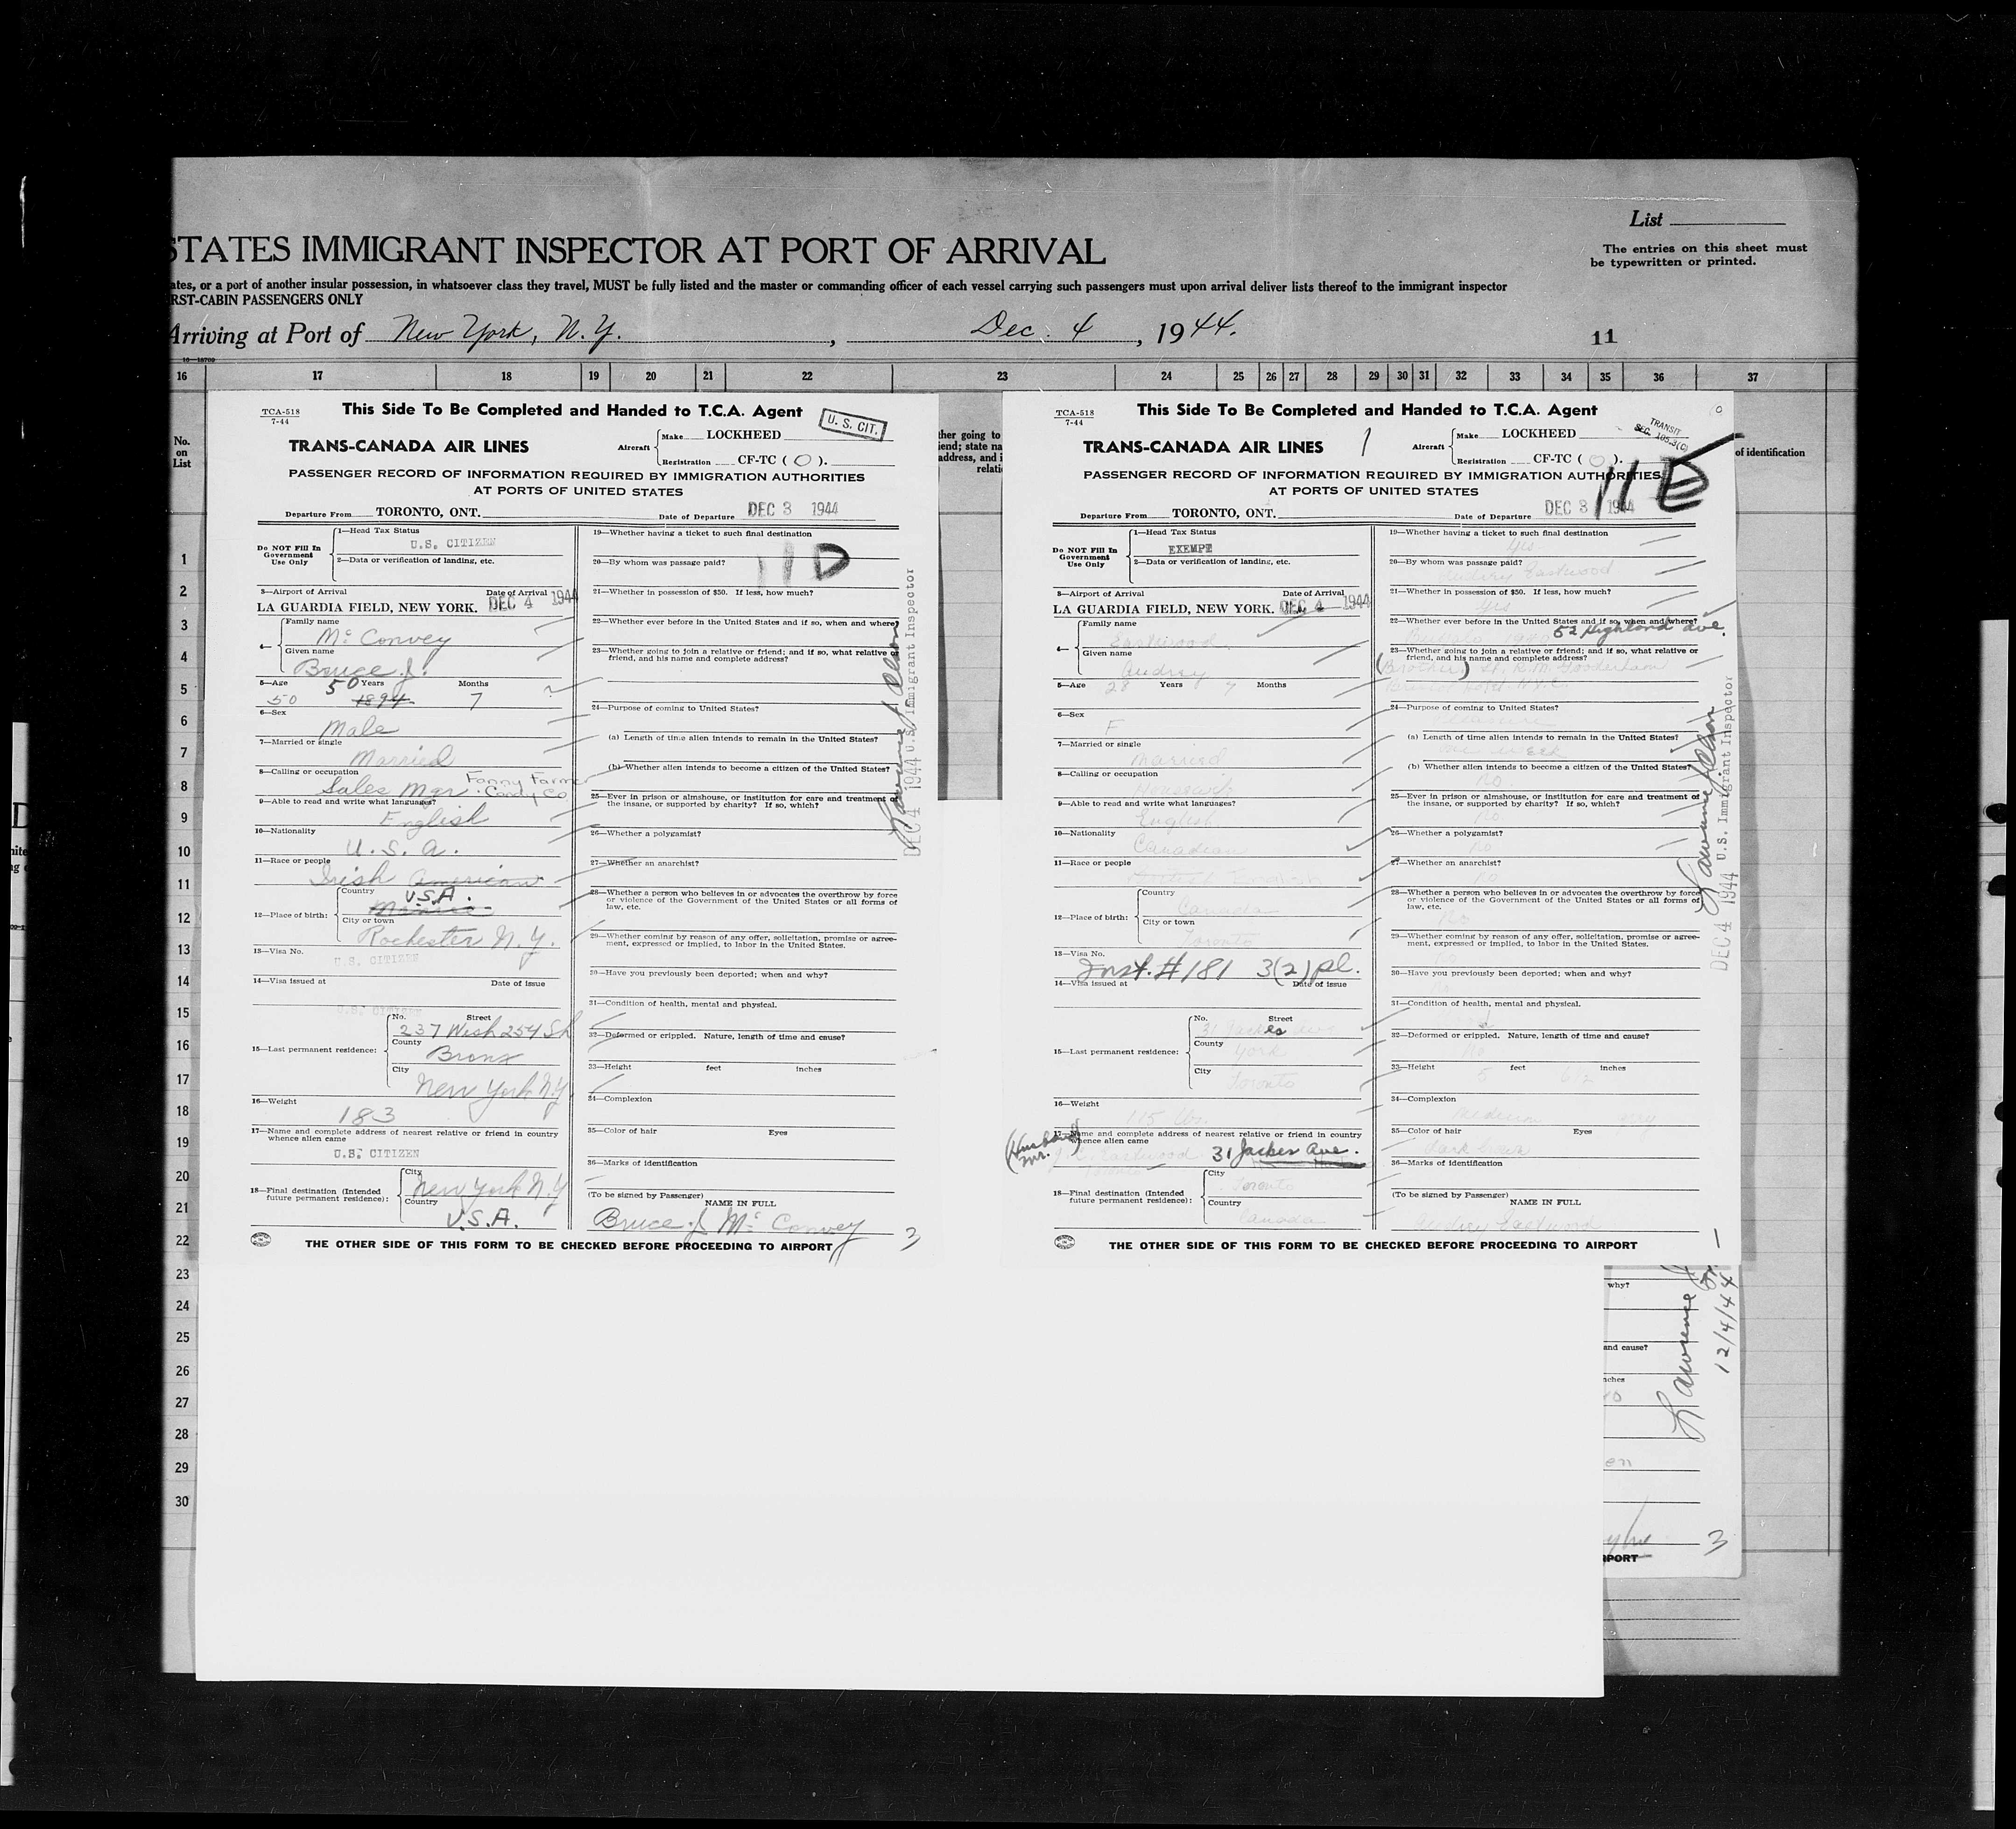 List
STATES IMMIGRANT INSPECTOR AT PORT OF ARRIVAL
The entries on this sheet must
be typewritten or printed.
ates, or a port of another insular possession, in whatsoever class they travel, MUST be fully listed and the master or commanding officer of each vessel carrying such passengers must upon arrival deliver lists thereof to the immigrant inspector
RST-CABIN PASSENGERS ONLY
Arriving at Port of New York, N.Y., Dec. 4, 1944.
11
16—18709
16 17 18 19 20 21 22 23 24 25 26 27 28 29 30 31 32 33 34 35 36 37
No.
on
List
1
2
3
4
5
6
7
8
9
10
11
12
13
14
15
16
17
18
19
20
21
22
23
24
25
26
27
28
29
30
TCA-518
7-44
This Side To Be Completed and Handed to T.C.A. Agent
U. S. CIT.
TRANS-CANADA AIR LINES
Aircraft
Make LOCKHEED
Registration CF-TC ( O ).
PASSENGER RECORD OF INFORMATION REQUIRED BY IMMIGRATION AUTHORITIES
AT PORTS OF UNITED STATES
Departure From TORONTO, ONT. Date of Departure DEC 3 1944
Do NOT Fill In
Government
Use Only
1—Head Tax Status
U.S. CITIZEN
2—Data or verification of landing, etc.
3—Airport of Arrival Date of Arrival
LA GUARDIA FIELD, NEW YORK. DEC 4 1944
4—
Family name
McConvey
Given name
Bruce J.
5—Age 50 Years Months
50 1894 7
6—Sex
Male
7—Married or single
Married
8—Calling or occupation
Sales Mgr. Fanny Farmer
Candy Co
9—Able to read and write what languages?
English
10—Nationality
U.S.A.
11—Race or people
Irish American
12—Place of birth:
Country
U.S.A.
City or town
Rochester N.Y.
13—Visa No.
U.S. CITIZEN
14—Visa issued at Date of issue
U.S. CITIZEN
15—Last permanent residence:
No. Street
237 West 254 St
County
Bronx
City
New York N.Y.
16—Weight
183
17—Name and complete address of nearest relative or friend in country
whence alien came
U.S. CITIZEN
18—Final destination (Intended
future permanent residence):
City
New York N.Y
Country
U.S.A.
19—Whether having a ticket to such final destination
11 D
20—By whom was passage paid?
21—Whether in possession of $50. If less, how much?
22—Whether ever before in the United States and if so, when and where?
23—Whether going to join a relative or friend; and if so, what relative or
friend, and his name and complete address?
24—Purpose of coming to United States?
(a) Length of time alien intends to remain in the United States?
(b) Whether alien intends to become a citizen of the United States?
25—Ever in prison or almshouse, or institution for care and treatment of
the insane, or supported by charity? If so, which?
26—Whether a polygamist?
27—Whether an anarchist?
28—Whether a person who believes in or advocates the overthrow by force
or violence of the Government of the United States or all forms of
law, etc.
29—Whether coming by reason of any offer, solicitation, promise or agree-
ment, expressed or implied, to labor in the United States.
30—Have you previously been deported; when and why?
31—Condition of health, mental and physical.
32—Deformed or crippled. Nature, length of time and cause?
33—Height feet inches
34—Complexion
35—Color of hair Eyes
36—Marks of identification
(To be signed by Passenger) NAME IN FULL
Bruce J McConvey
3
THE OTHER SIDE OF THIS FORM TO BE CHECKED BEFORE PROCEEDING TO AIRPORT
DEC 4 1944 U.S. Immigrant Inspector
ther going to
iend; state na
address, and i
relati
TCA-518
7-44
This Side To Be Completed and Handed to T.C.A. Agent
TRANSIT
SEC. 105.3(C)
TRANS-CANADA AIR LINES
1
Aircraft
Make LOCKHEED
Registration CF-TC ( O ).
11 E
PASSENGER RECORD OF INFORMATION REQUIRED BY IMMIGRATION AUTHORITIES
AT PORTS OF UNITED STATES
Departure From TORONTO, ONT. Date of Departure DEC 3 1944
Do NOT Fill In
Government
Use Only
1—Head Tax Status
EXEMPT
2—Data or verification of landing, etc.
3—Airport of Arrival Date of Arrival
LA GUARDIA FIELD, NEW YORK. DEC 4 1944
4—
Family name
Eastwood
Given name
Audrey
5—Age 28 Years 7 Months
6—Sex
F
7—Married or single
Married
8—Calling or occupation
Housewife
9—Able to read and write what languages?
English
10—Nationality
Canadian
11—Race or people
English
12—Place of birth:
Country
Canada
City or town
Toronto
13—Visa No.
Inst. #181 3(2) pl.
14—Visa issued at Date of issue
15—Last permanent residence:
No. Street
31 Jackes Ave
County
York
City
Toronto
16—Weight
115 lbs.
17—Name and complete address of nearest relative or friend in country
whence alien came
(Husband)
Mr. Eastwood 31 Jackes Ave.
18—Final destination (Intended
future permanent residence):
City
Toronto
Country
Canada
19—Whether having a ticket to such final destination
Yes
20—By whom was passage paid?
Audrey Eastwood
21—Whether in possession of $50. If less, how much?
Yes
22—Whether ever before in the United States and if so, when and where?
Buffalo 1940 52 Highland Ave.
23—Whether going to join a relative or friend; and if so, what relative or
friend, and his name and complete address?
(Brother) Lt. R.M. Gooderham
Hotel N.Y.C.
24—Purpose of coming to United States?
Pleasure
(a) Length of time alien intends to remain in the United States?
one week
(b) Whether alien intends to become a citizen of the United States?
No
25—Ever in prison or almshouse, or institution for care and treatment of
the insane, or supported by charity? If so, which?
No
26—Whether a polygamist?
No
27—Whether an anarchist?
No
28—Whether a person who believes in or advocates the overthrow by force
or violence of the Government of the United States or all forms of
law, etc.
No
29—Whether coming by reason of any offer, solicitation, promise or agree-
ment, expressed or implied, to labor in the United States.
No
30—Have you previously been deported; when and why?
No
31—Condition of health, mental and physical.
32—Deformed or crippled. Nature, length of time and cause?
No
33—Height 5 feet 6 1/2 inches
34—Complexion
Medium
35—Color of hair Eyes
dark brown grey
36—Marks of identification
(To be signed by Passenger) NAME IN FULL
Audrey Eastwood
THE OTHER SIDE OF THIS FORM TO BE CHECKED BEFORE PROCEEDING TO AIRPORT
DEC 4 1944 U.S. Immigrant Inspector
of identification
why?
and cause?
nches
en
RPORT
3
Lawrence
12/4/44